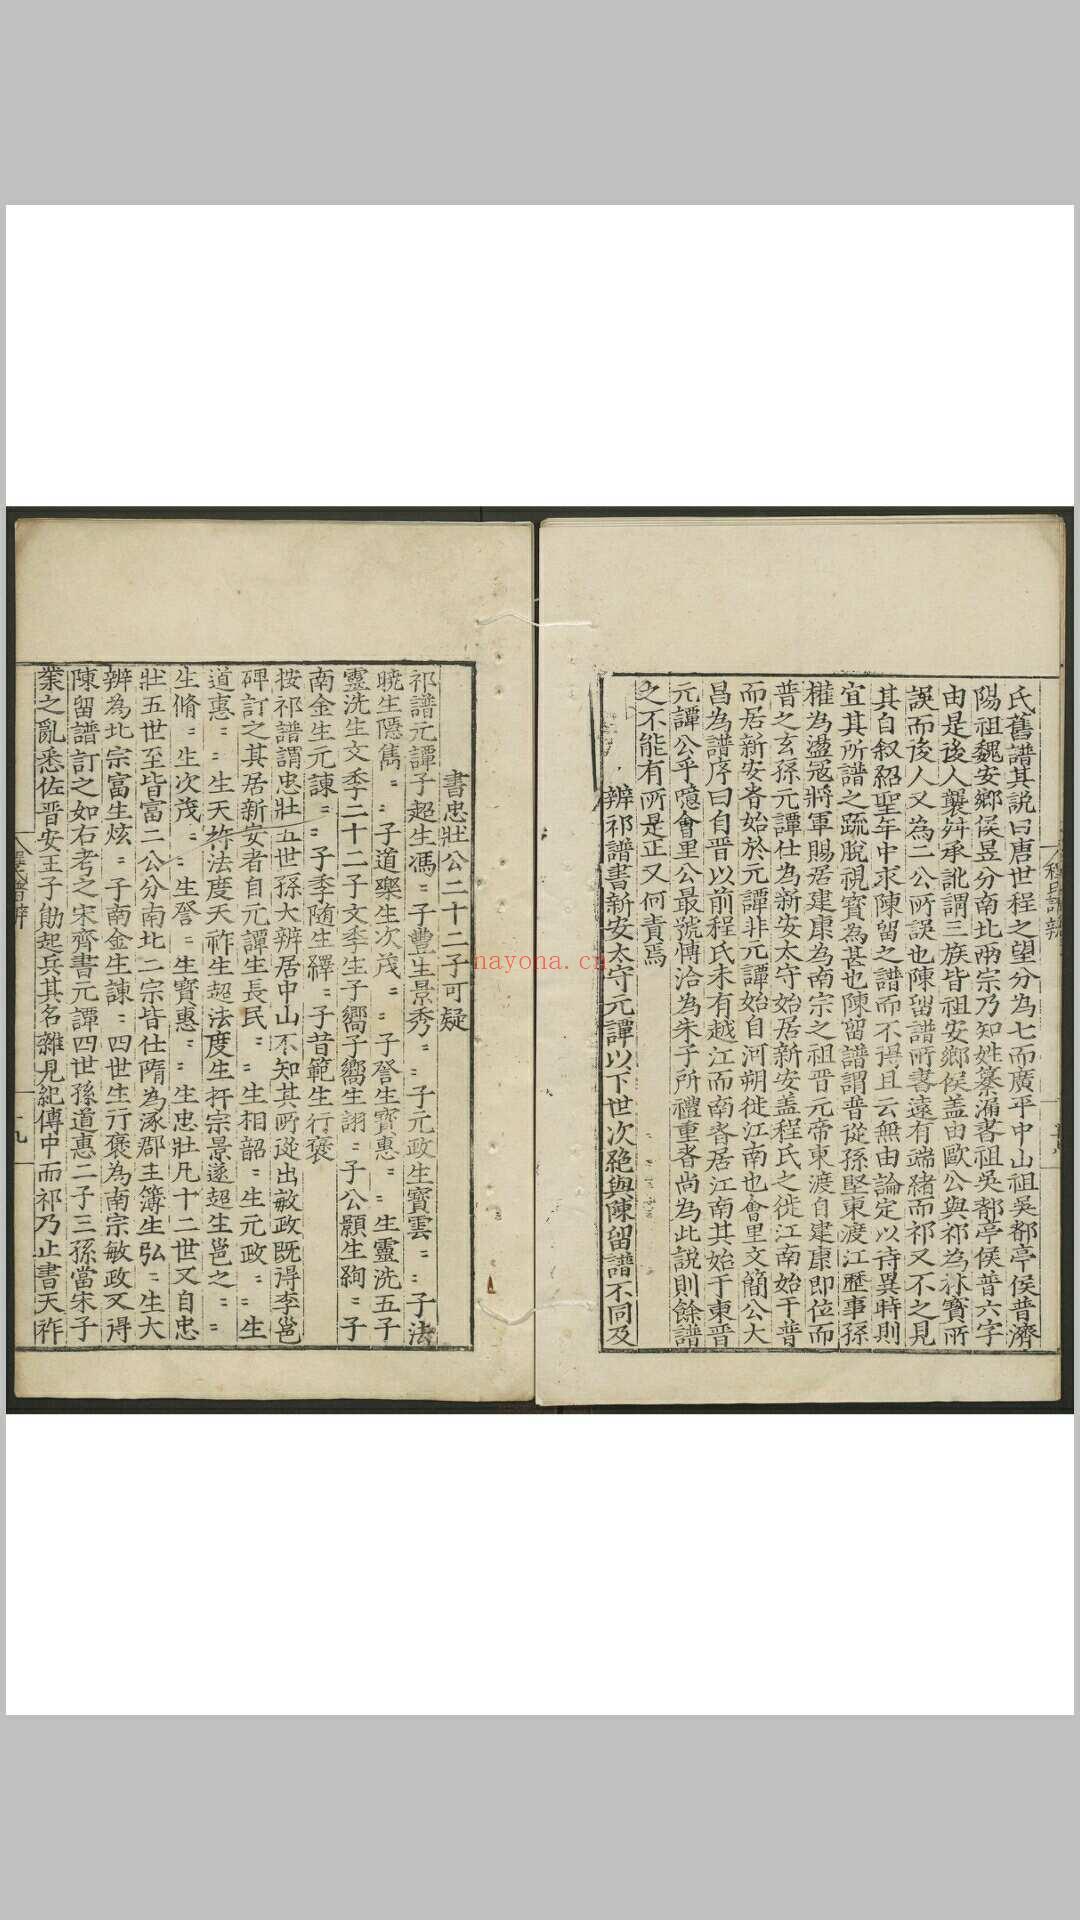 氏舊譜其說曰唐世程之望分為七而廣平中山祖吳都亭侯普濟
陽祖魏安鄉侯昱分南北兩宗乃知姓纂漏書祖吳都亭侯普六字
由是後人襲舛承訛謂三族皆祖安鄉侯盖由歐公與祁為林寳所
誤而後人又為二公所誤也陳留譜所書遠有端緒而祁又不之見
其自叙紹聖年中求陳留之譜而不得且云無由論定以待異時則
宜其所譜之䟽脫視寳為甚也陳留譜謂普從孫堅東渡江歷事孫
權為盪寇將軍賜居建康為南宗之祖晋元帝東渡自建康即位而
普之玄孫元譚仕為新安太守始居新安盖程氏之徙江南始于普
而居新安者始於元譚非元譚始自河朔徙江南也會里文簡公大
昌為譜序曰自晋以前程氏未有越江而南者居江南其始于東晋
元譚公乎噫會里公最號愽洽為朱子所禮重者尚為此說則餘譜
之不能有所是正又何責焉
辨祁譜書新安太守元譚以下世次絶與陳留譜不同及
書忠壯公二十二子可疑
祁譜元譚子超生馮〻子豊生景秀〻子元政生寳雲〻子法
曉生隠雋〻子道樂生次茂〻子詧生寳惠〻生靈洗五子
靈洗生文季二十二子文季生子嚮子嚮生詡〻子公顥生絢〻子
南金生元諌〻子季随生繹〻子昔範生行褒
按祁譜謂忠壯五世孫大辨居中山不知其所從出敏政既得李邕
碑訂之其居新安者自元譚生長民〻生相韶〻生元政〻生
道惠〻生天祚法度天祚生超法度生抨宗景遂超生邕之〻
生脩〻生次茂〻生詧〻生寳惠〻生忠壯凡十二世又自忠
壯五世至皆富二公分南北二宗皆仕隋為涿郡主簿生弘〻生大
辨為北宗富生炫〻子南金生諌〻四世生行褒為南宗敏政又得
陳留譜訂之如右考之宋齊書元譚四世孫道惠二子三孫當宋子
業之亂悉佐晋安王子勛起兵其名雜見紀傳中而祁乃止書天祚
nayona.cn